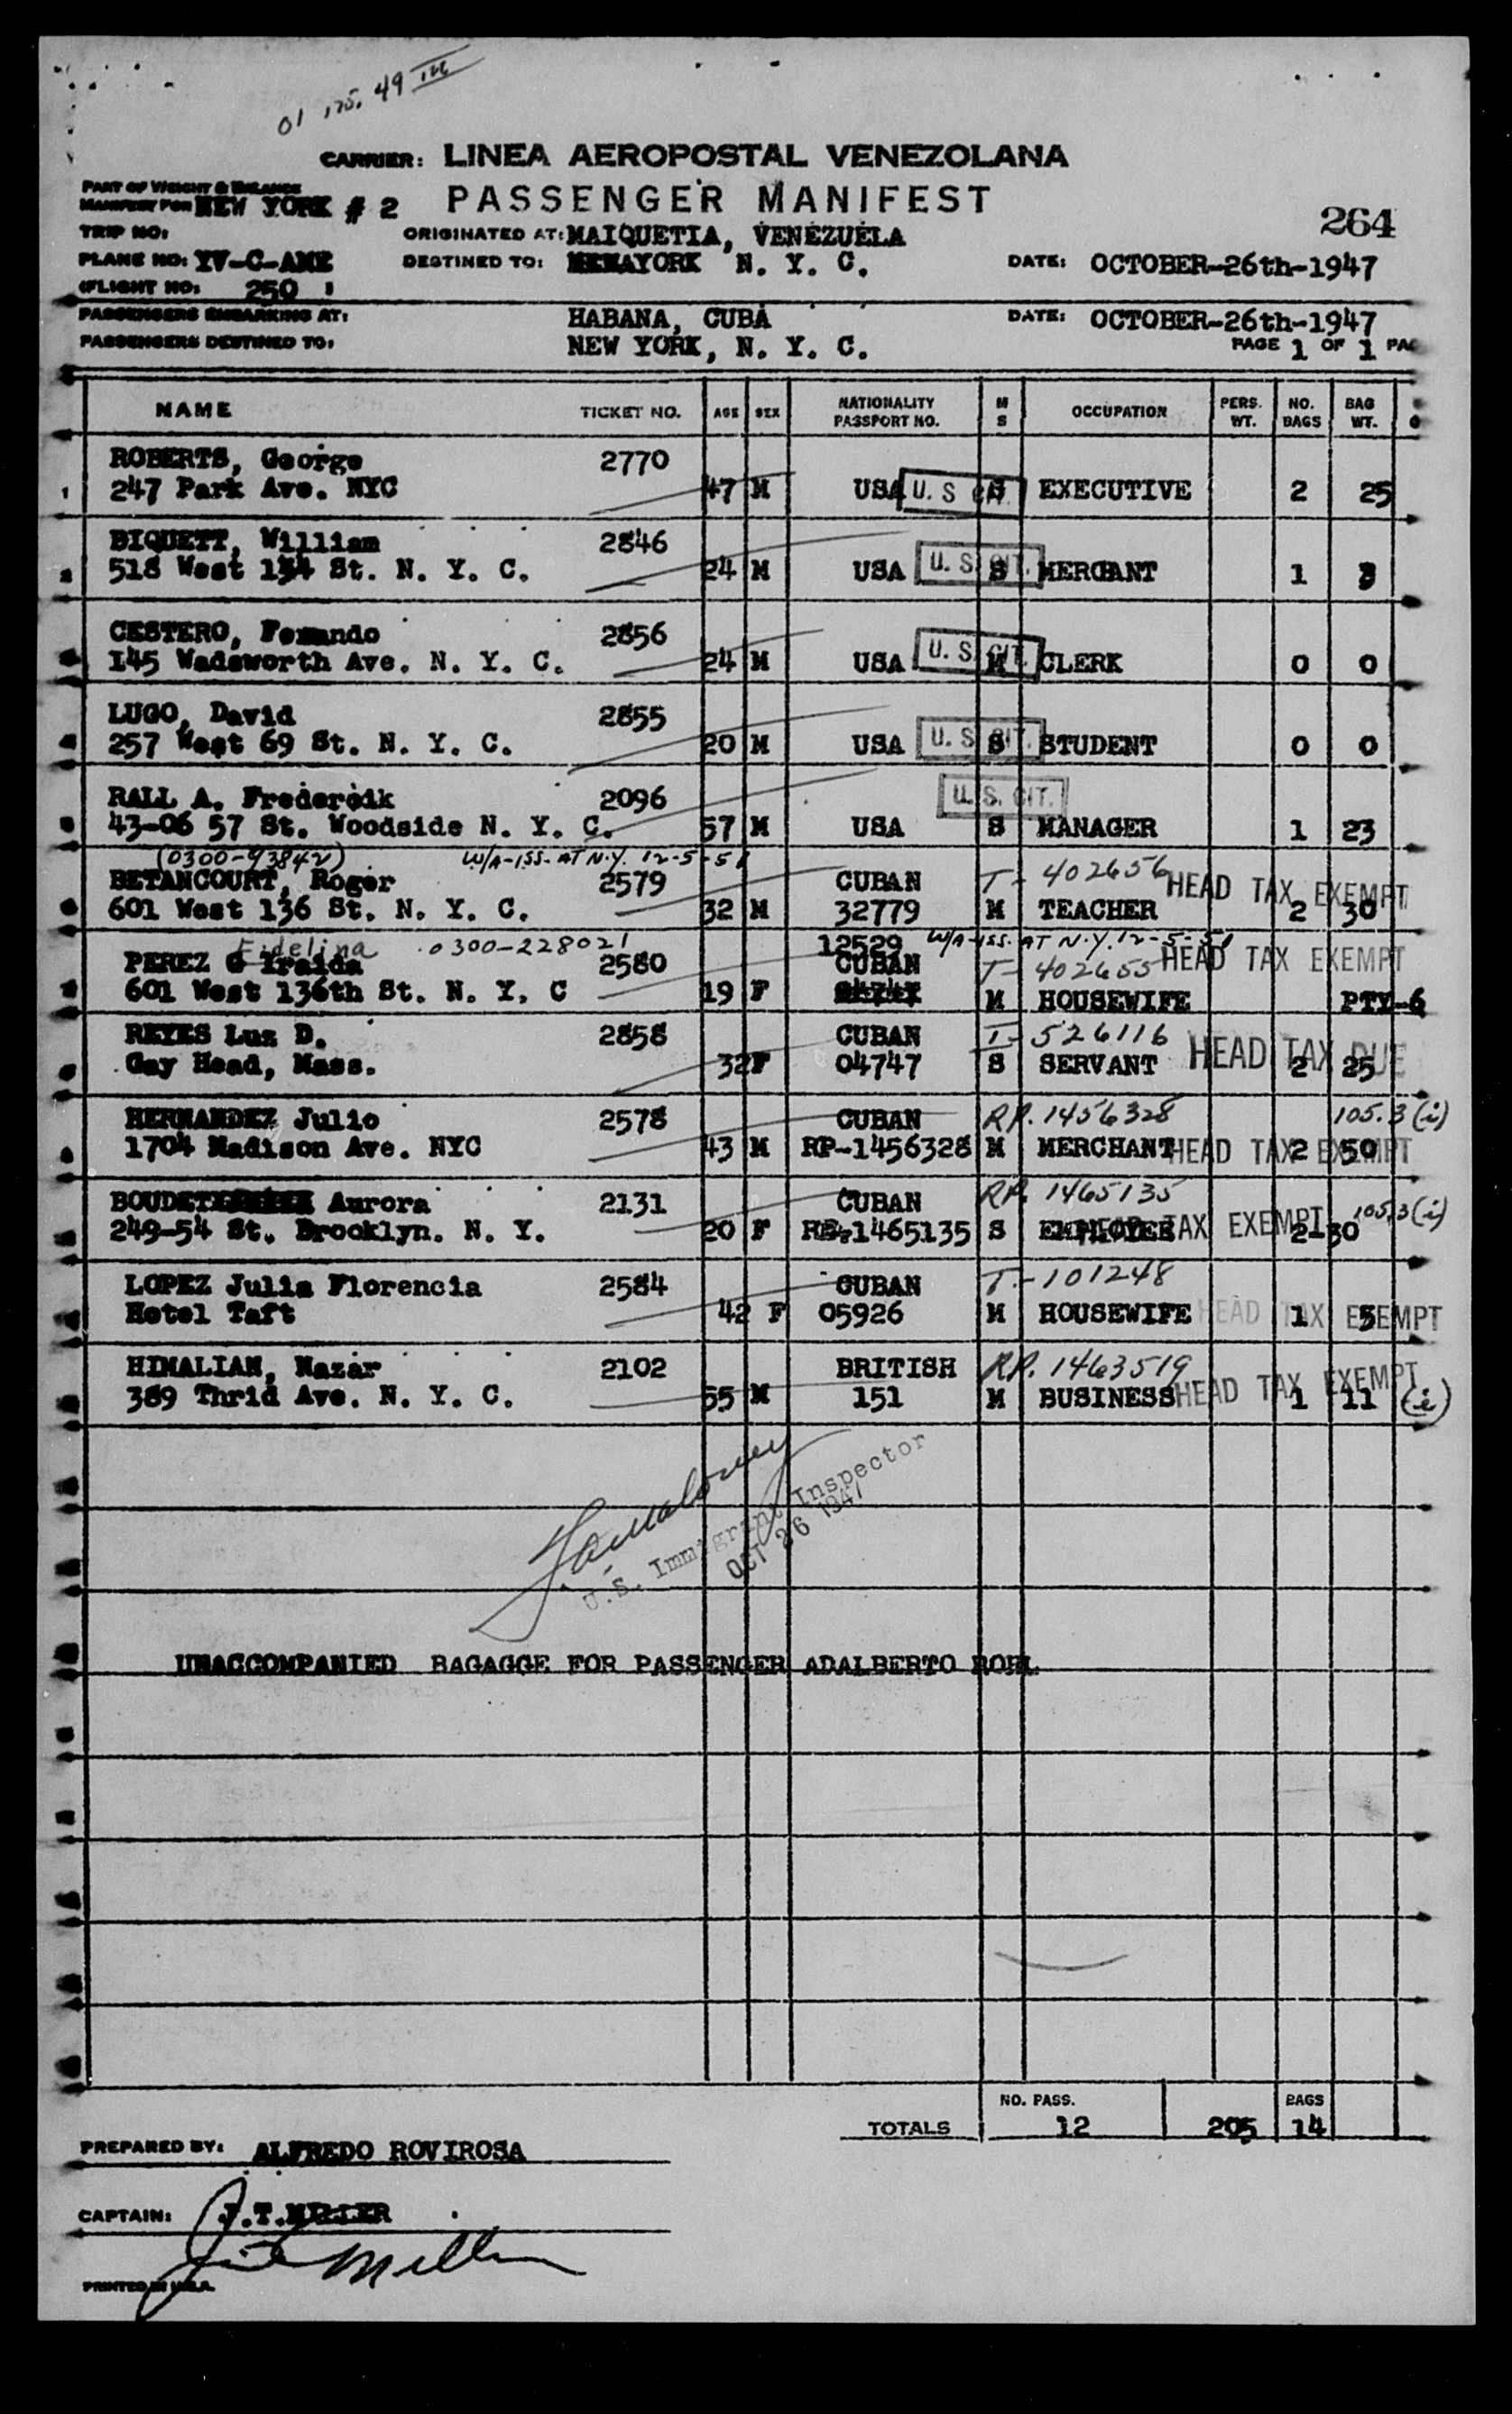 01 175. 49
CARRIER: LINEA AEROPOSTAL VENEZOLANA
PART OF WEIGHT & BALANCE
MANIFEST FOR NEW YORK # 2 PASSENGER MANIFEST
264
TRIP NO: ORIGINATED AT: MAIQUETIA, VENEZUELA
PLANE NO: YV-C-AME DESTINED TO: YORK N. Y. C. DATE: OCTOBER-26th-1947
(FLIGHT NO: 250 )
PASSENGERS EMBARKING AT: HABANA, CUBA DATE: OCTOBER-26th-1947
PASSENGERS DESTINED TO: NEW YORK, N. Y. C. PAGE 1 OF 1 PAG
NAME TICKET NO. AGE SEX NATIONALITY PASSPORT NO. M S OCCUPATION PERS. WT. NO. BAGS BAG WT.
ROBERTS, George 2770
1 247 Park Ave. NYC 47 M USA U. S CIT. S EXECUTIVE 2 25
BIQUETT, William 2846
2 518 West 134 St. N. Y. C. 24 M USA U. S. CIT. S MERCHANT 1 3
CESTERO, Fernando 2856
145 Wadsworth Ave. N. Y. C. 24 M USA U. S. CIT. M CLERK 0 0
LUGO, David 2855
257 West 69 St. N. Y. C. 20 M USA U. S. CIT. S STUDENT 0 0
RALL A. Frederoik 2096 U. S. CIT.
43-06 57 St. Woodside N. Y. C. 57 M USA S MANAGER 1 23
(0300-93842) W/A-ISS. AT N.Y. 12-5-51
BETANCOURT, Roger 2579 CUBAN T-402656 HEAD TAX EXEMPT
601 West 136 St. N. Y. C. 32 M 32779 M TEACHER 2 30
Fidelina 0300-228021 12529 W/A-ISS. AT N.Y. 12-5-51
PEREZ G Iraida 2580 CUBAN T-402655 HEAD TAX EXEMPT
601 West 136th St. N. Y. C 19 F M HOUSEWIFE PTY-6
REYES Luz D. 2858 CUBAN T-526116 HEAD TAX DUE
Gay Head, Mass. 32 F 04747 S SERVANT 2 25
HERNANDEZ Julio 2578 CUBAN RP. 1456328 105.3(i)
1704 Madison Ave. NYC 43 M RP-1456328 M MERCHANT HEAD TAX EXEMPT 2 50
BOUDET Aurora 2131 CUBAN RP. 1465135 105.3(i)
249-54 St. Brooklyn. N. Y. 20 F RP-1465135 S EMPLOYEE HEAD TAX EXEMPT 2 30
LOPEZ Julia Florencia 2584 CUBAN T.-101248
Hotel Taft 42 F 05926 M HOUSEWIFE HEAD TAX EXEMPT 1 5
HIMALIAN, Nazar 2102 BRITISH RP. 1463519
389 Thrid Ave. N. Y. C. 55 M 151 M BUSINESS HEAD TAX EXEMPT 1 11 (i)
U.S. Immigrant Inspector
OCT 26 1947
UNACCOMPANIED BAGAGGE FOR PASSENGER ADALBERTO
NO. PASS. BAGS
TOTALS 12 205 14
PREPARED BY: ALFREDO ROVIROSA
CAPTAIN: J.T.MILLER
PRINTED IN U.S.A.